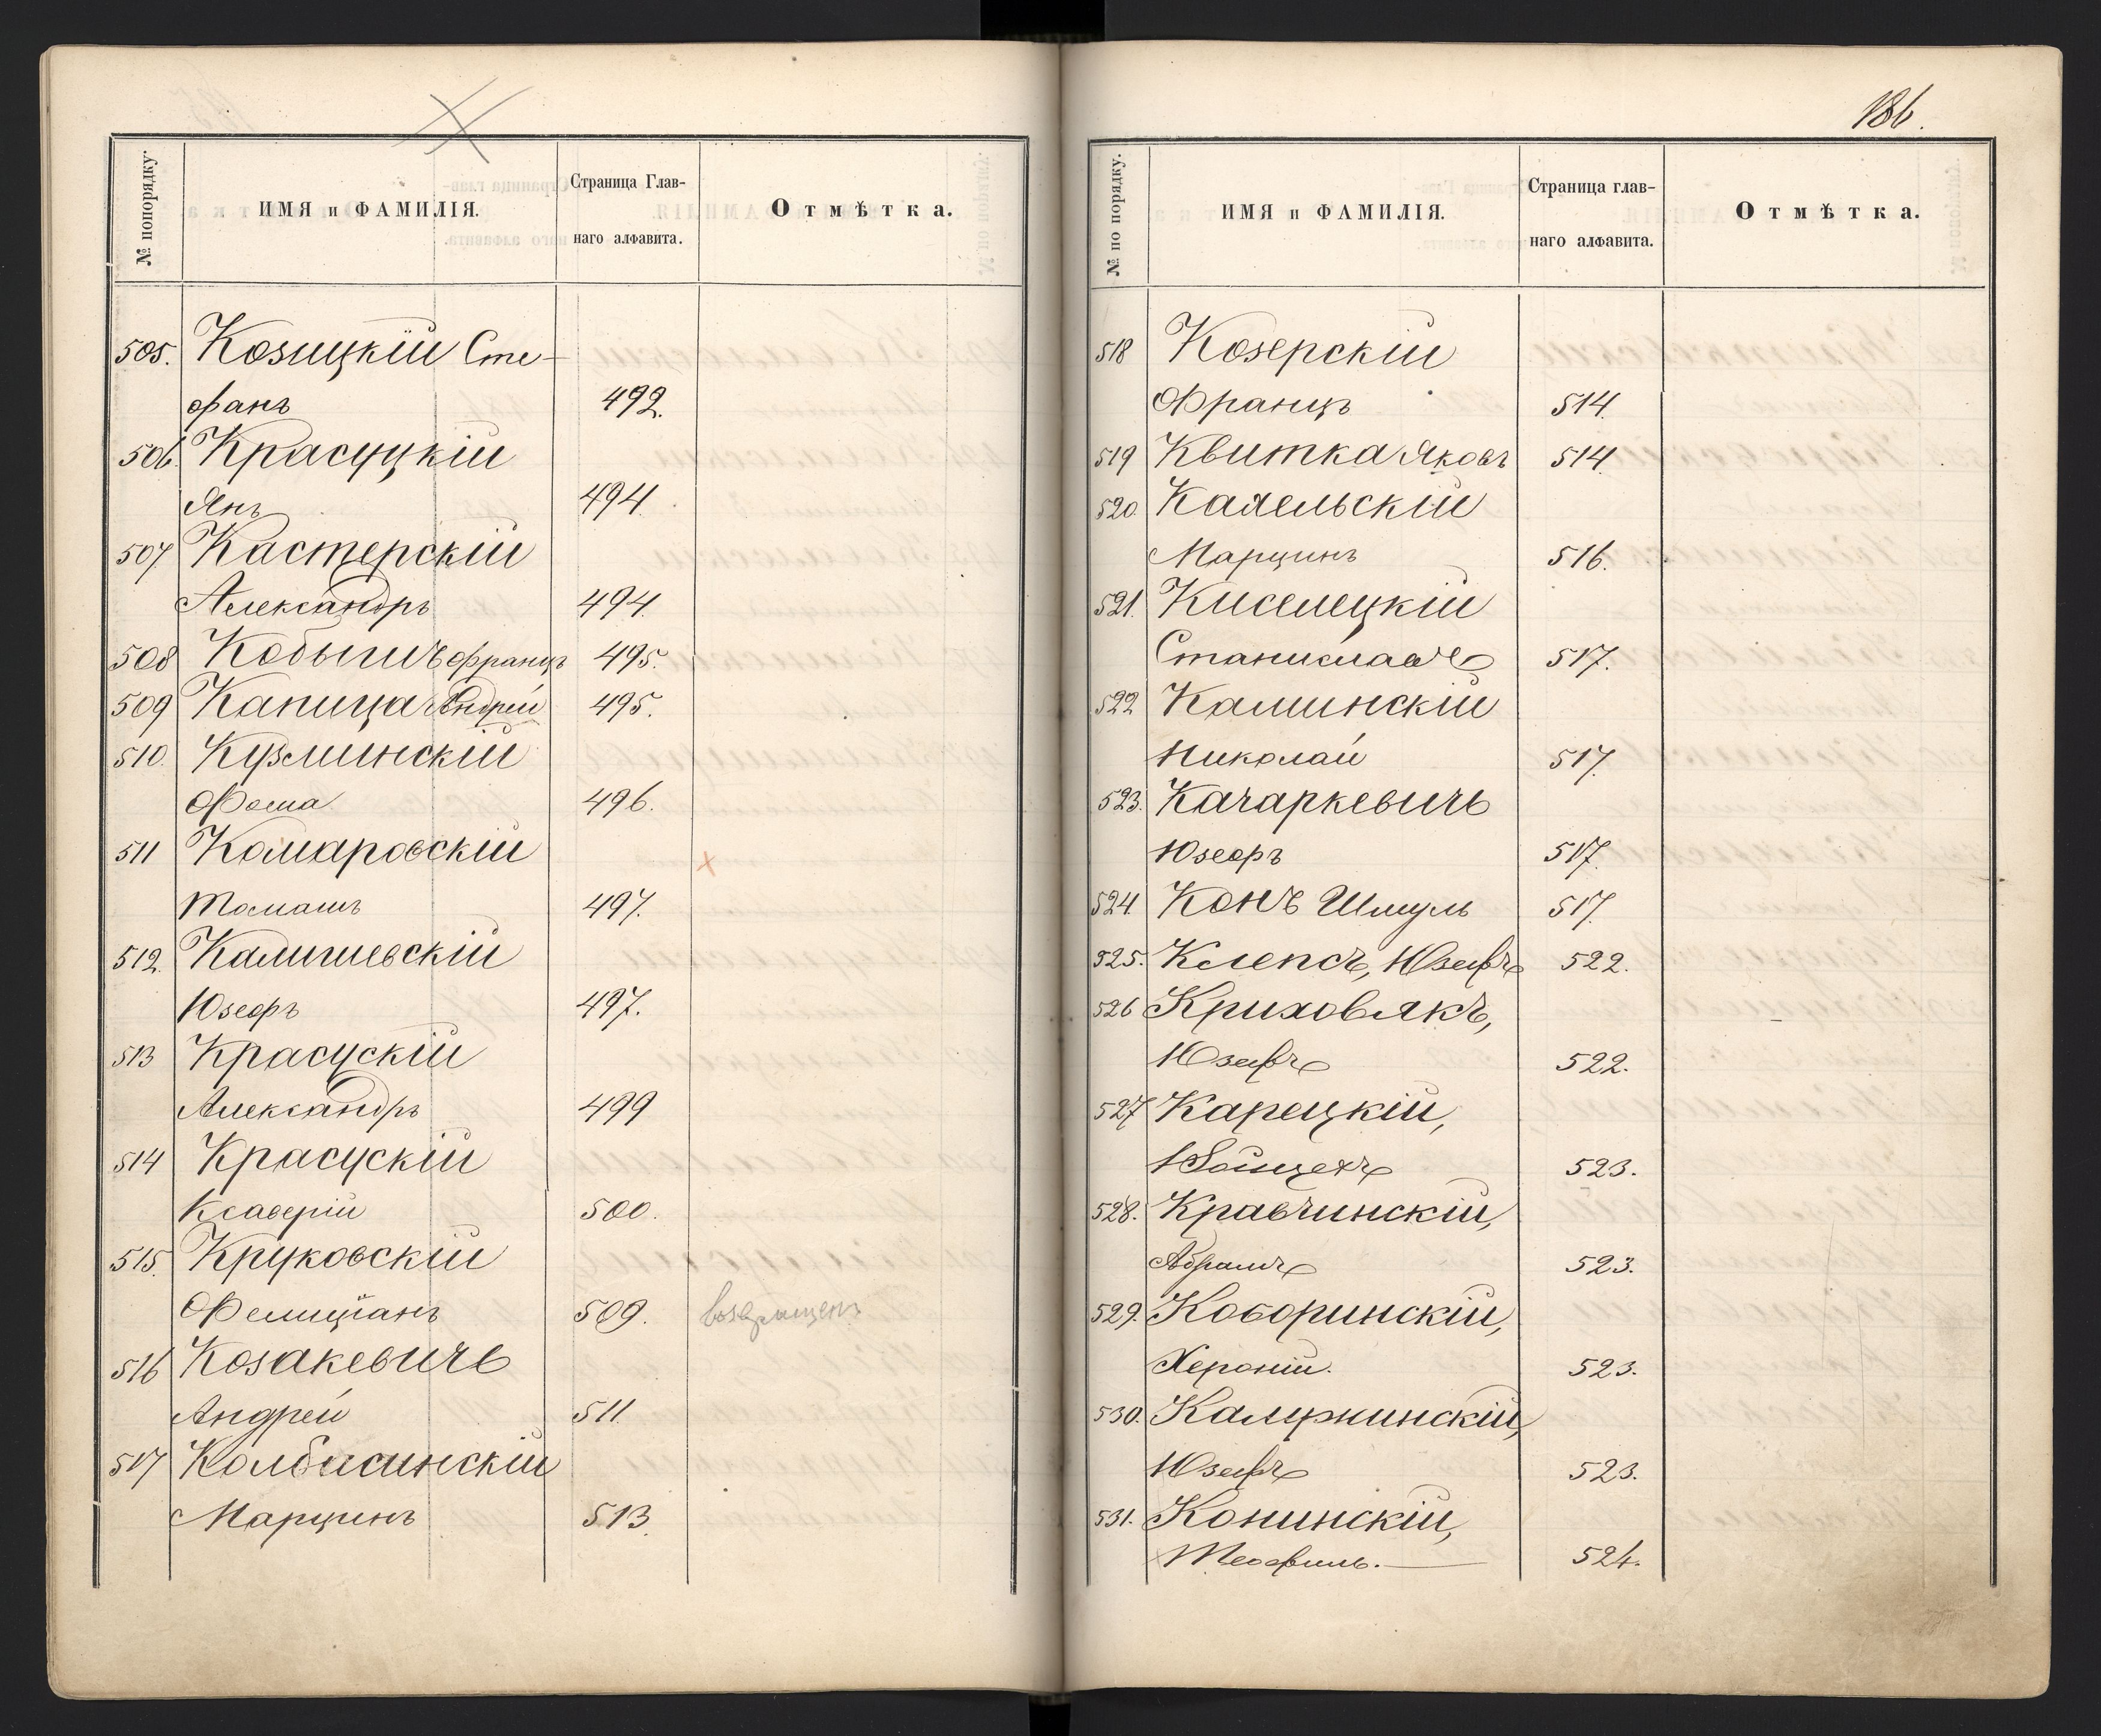 186.
№ попорядку.
ИМЯ и ФАМИЛІЯ.
Страница Глав-
наго алфавита.
Отмѣтка.
505. Козицкій Сте-
фанъ 492.
506. Красуцкій
Янъ 494.
507 Кастерскій
Александръ 494.
508 Кобыличъ Францъ 495.
509 Капица Андрей 495.
510. Кузминскій
Фома 496.
511 Комаровскій
Томашъ 497.
512. Калишевскій
Юзефъ 497.
513 Красускій
Александръ 499
514 Красускій
Ксаверій 500.
515. Круковскій
Фелиціанъ 509. возвращенъ
516 Козакевичъ
Андрей 511.
517 Колбасинскій
Марцинъ 513.
№ по порядку.
ИМЯ и ФАМИЛІЯ.
Страница глав-
наго алфавита.
Отмѣтка.
518 Козерскій
Францъ 514.
519 Квитка Яковъ 514.
520.
Марцинъ 516.
521. Киселецкій
Станиславъ 517.
522 Каминскій
Николай 517.
523. Качаркевичъ
Юзефъ 517.
524. Конъ Шмуль 517.
525. Клепсъ, Юзефъ 522.
526 Криховякъ,
Юзефъ 522.
527 Карецкій,
Войцехъ 523.
528. Кравчинскій,
Абрамъ 523.
529. Коворинскій,
523.
530. Калужинскій,
Юзефъ 523.
531. Конинскій,
Теофиль. 524.